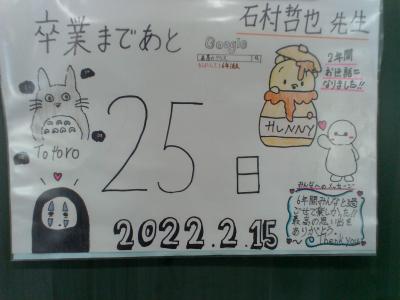 卒業まであと
石村哲也 先生
Google
2年間
お世話に
なりました!!
HUNNY
Totoro
25
日
みんなへのメッセージ
6年間みんなと過
ごせて楽しかった!!
最高の思い出を
ありがとう。
Thank you
2022.2.15